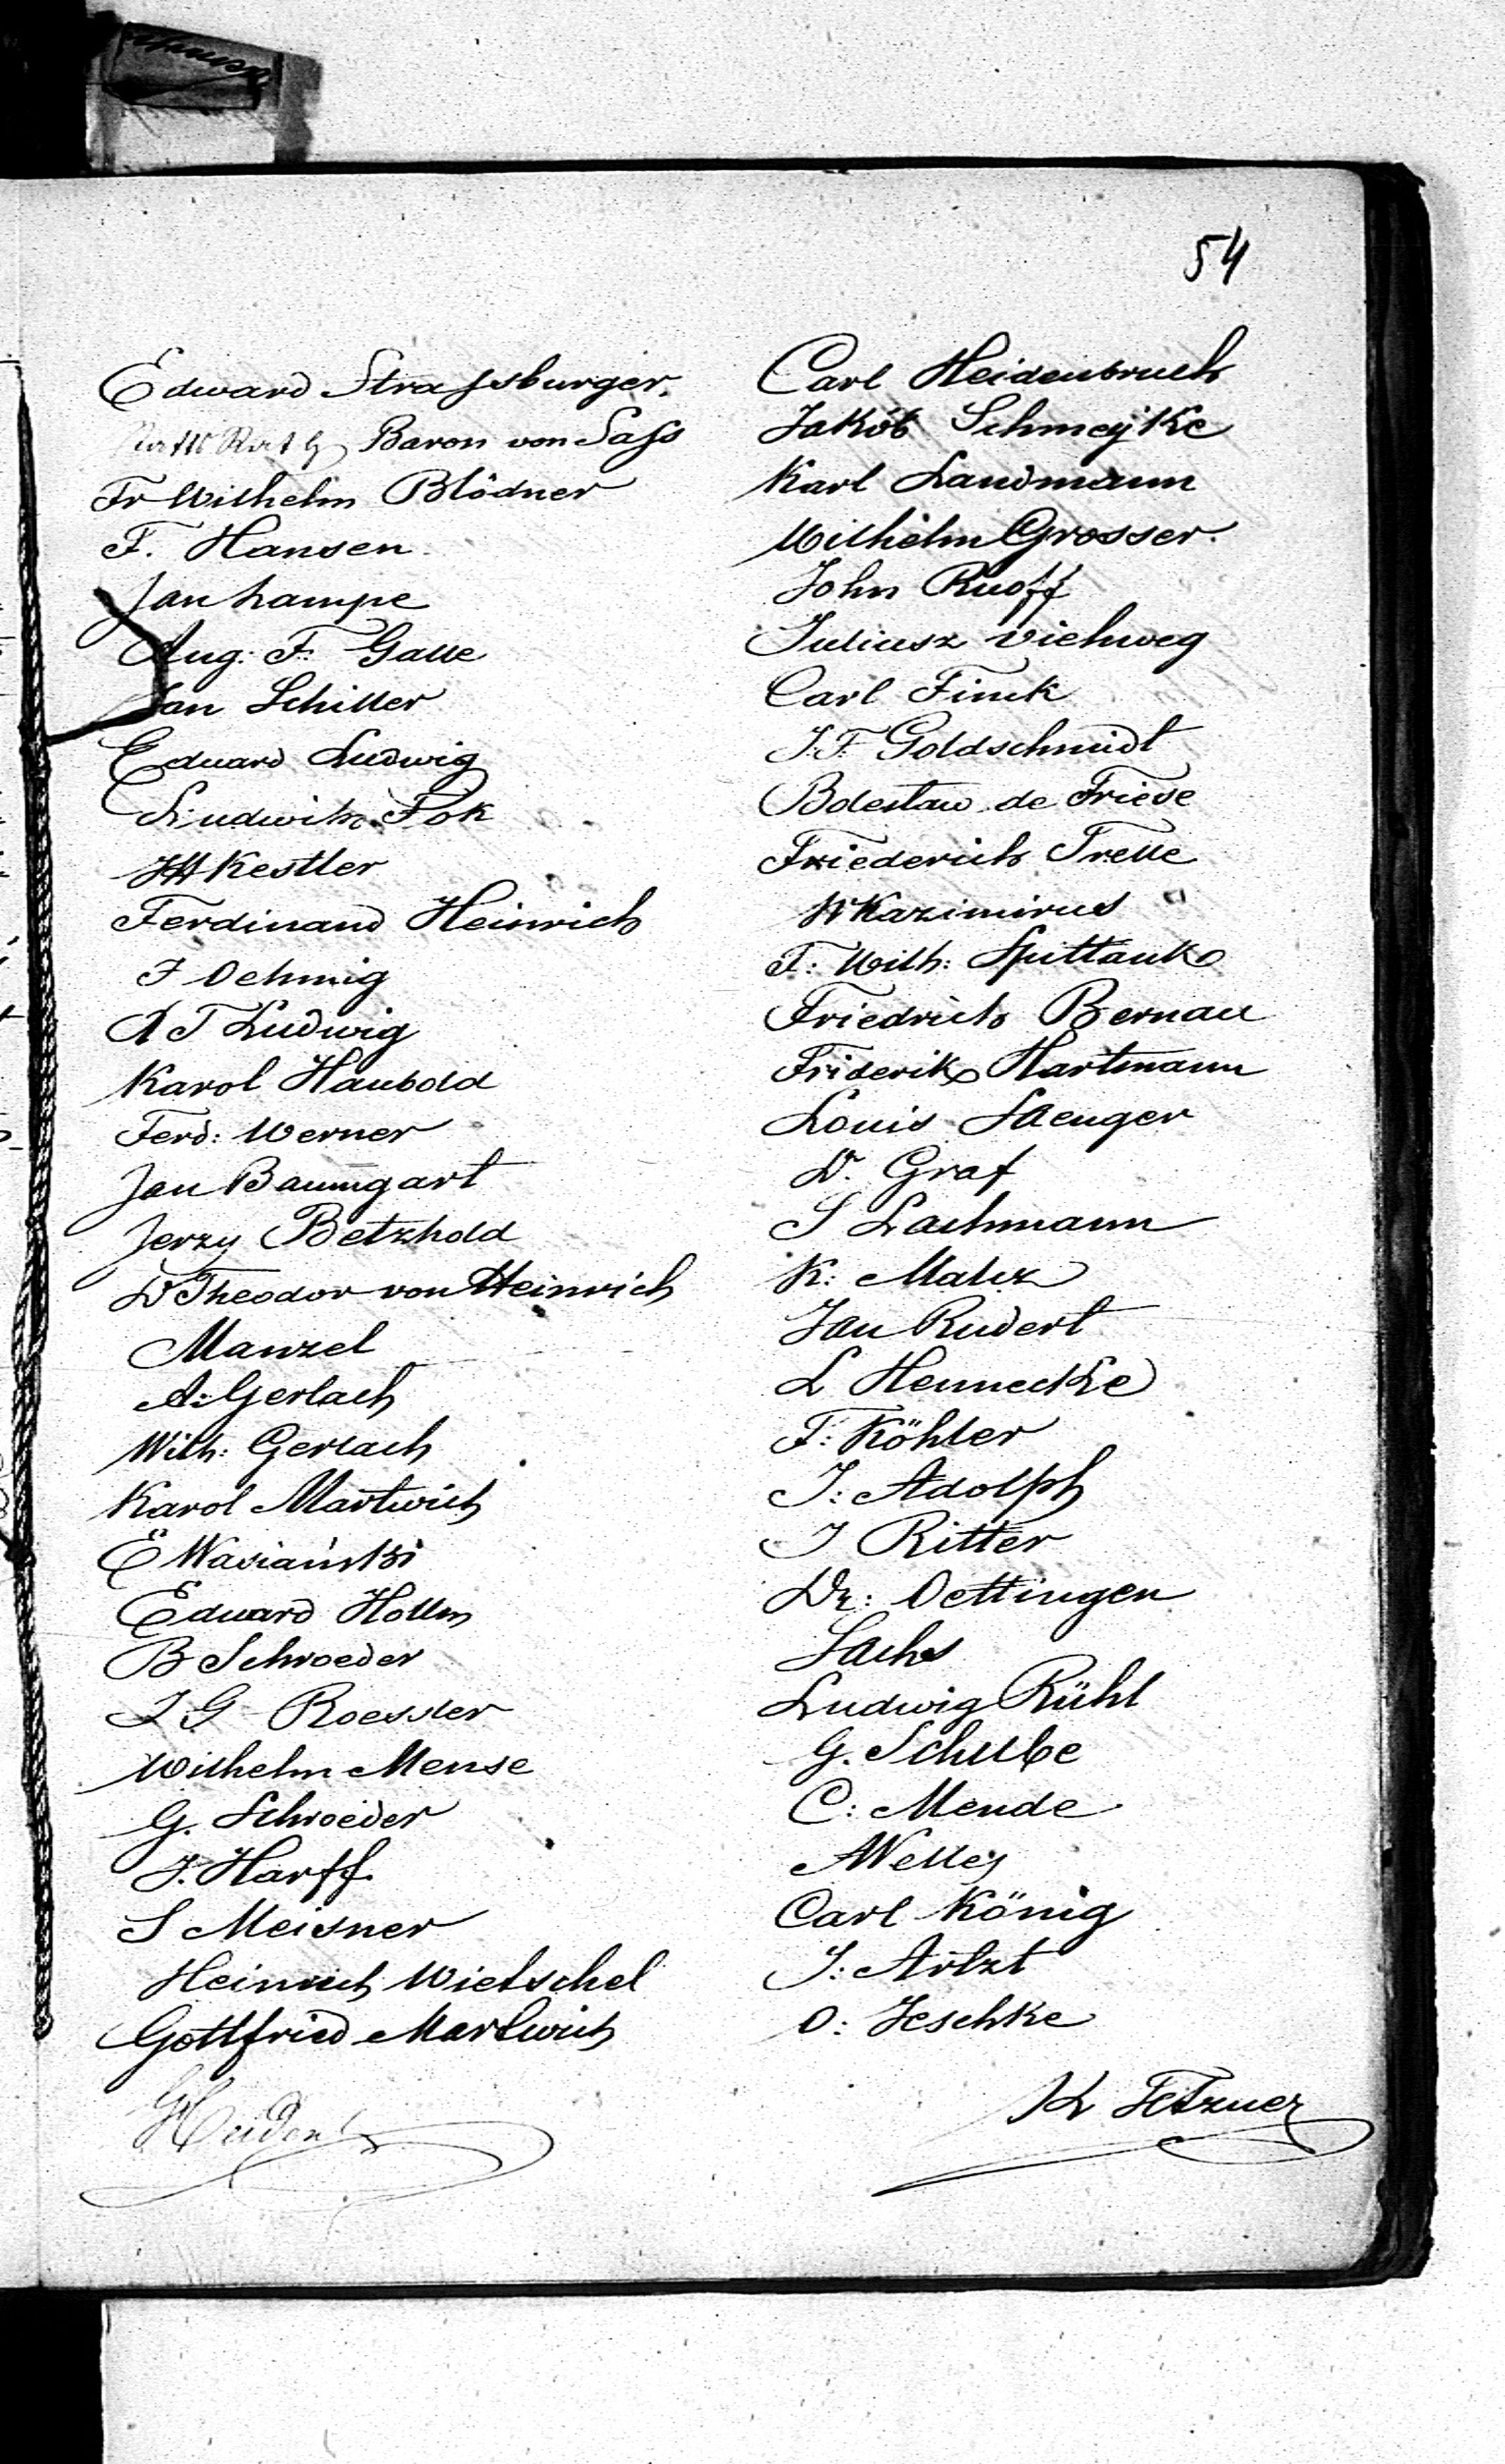 54
Edward Strassburger.
Baron von Sass
Fr Wilhelm Blödner
F. Hansen
Jan Lampe
Aug: F. Galle
Jan Schiller
Eduard Ludwig
Ludwik Fok
Kestler
Ferdinand Heinrich
F Oehmig
A T Ludwig
Karol Haubold
Ferd: Werner
Jan Baumgart
Jerzy Betzhold
Dr Theodor von Heinrich
Manzel
A: Gerlach
Wilh: Gerlach
Karol Martwich
E Wasiański
Edward Hollm
B Schroeder
I G Roessler
Wilhelm Mense
G. Schroeder
J. Harff
S Meisner
Heinrich Wietschel
Gottfried Martwich
Carl Heidenbruch
Jakób Schmejke
Karl Landmann
Wilhelm Grosser.
John Ruoff
Juliusz Viehweg
Carl Finck
J. F. Goldschmidt
Bolesław de Friese
Friederich Trelle
W Kazimirus
F: Wilh: Spittank
Friedrich Bernau
Friderik Hartmann
Louis Saenger
Dr. Graf
S Lachmann
K: Malcz
Jan Rudert
L Hennecke
F: Köhler
J: Adolph
J Ritter
Dr: Oettingen
Sachs
Ludwig Rühl
G. Schube
C: Mende
Carl König
J: Artzt
O: Jeschke
K Tetzner